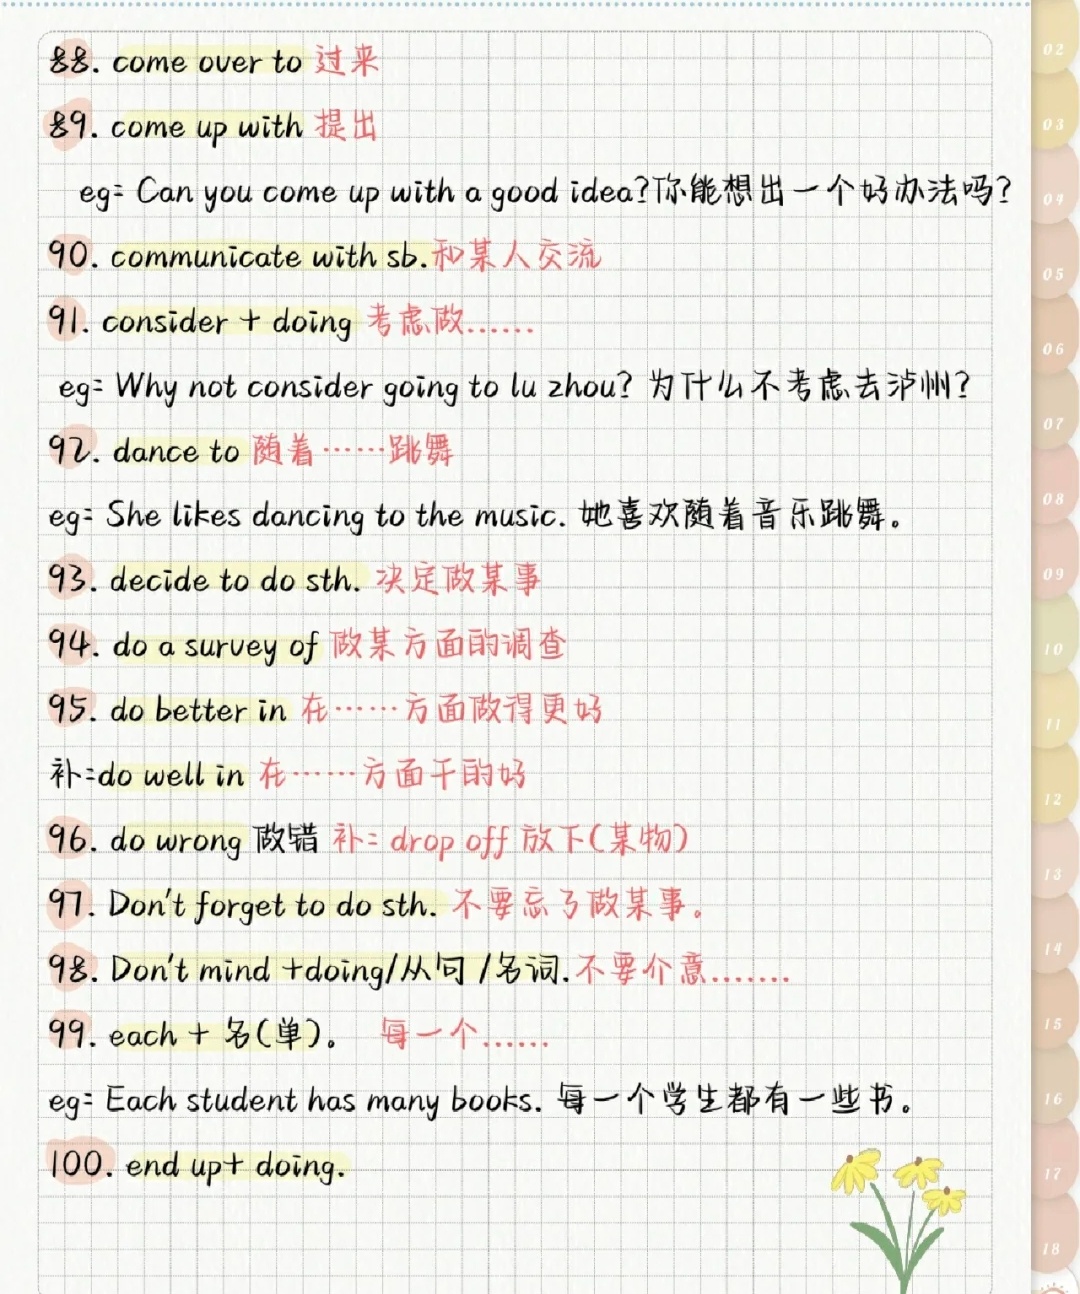 88. come over to 过来
89. come up with 提出
eg: Can you come up with a good idea?你能想出一个好办法吗?
90. communicate with sb.和某人交流
91. consider + doing 考虑做......
eg: Why not consider going to lu zhou? 为什么不考虑去泸州?
92. dance to 随着……跳舞
eg: She likes dancing to the music. 她喜欢随着音乐跳舞。
93. decide to do sth. 决定做某事
94. do a survey of 做某方面的调查
95. do better in 在……方面做得更好
补:do well in 在……方面干的好
96. do wrong 做错 补: drop off 放下(某物)
97. Don't forget to do sth. 不要忘了做某事。
98. Don't mind +doing/从句/名词.不要介意.......
99. each + 名(单)。 每一个......
eg: Each student has many books. 每一个学生都有一些书。
100. end up+ doing.
02
03
04
05
06
07
08
09
10
11
12
13
14
15
16
17
18